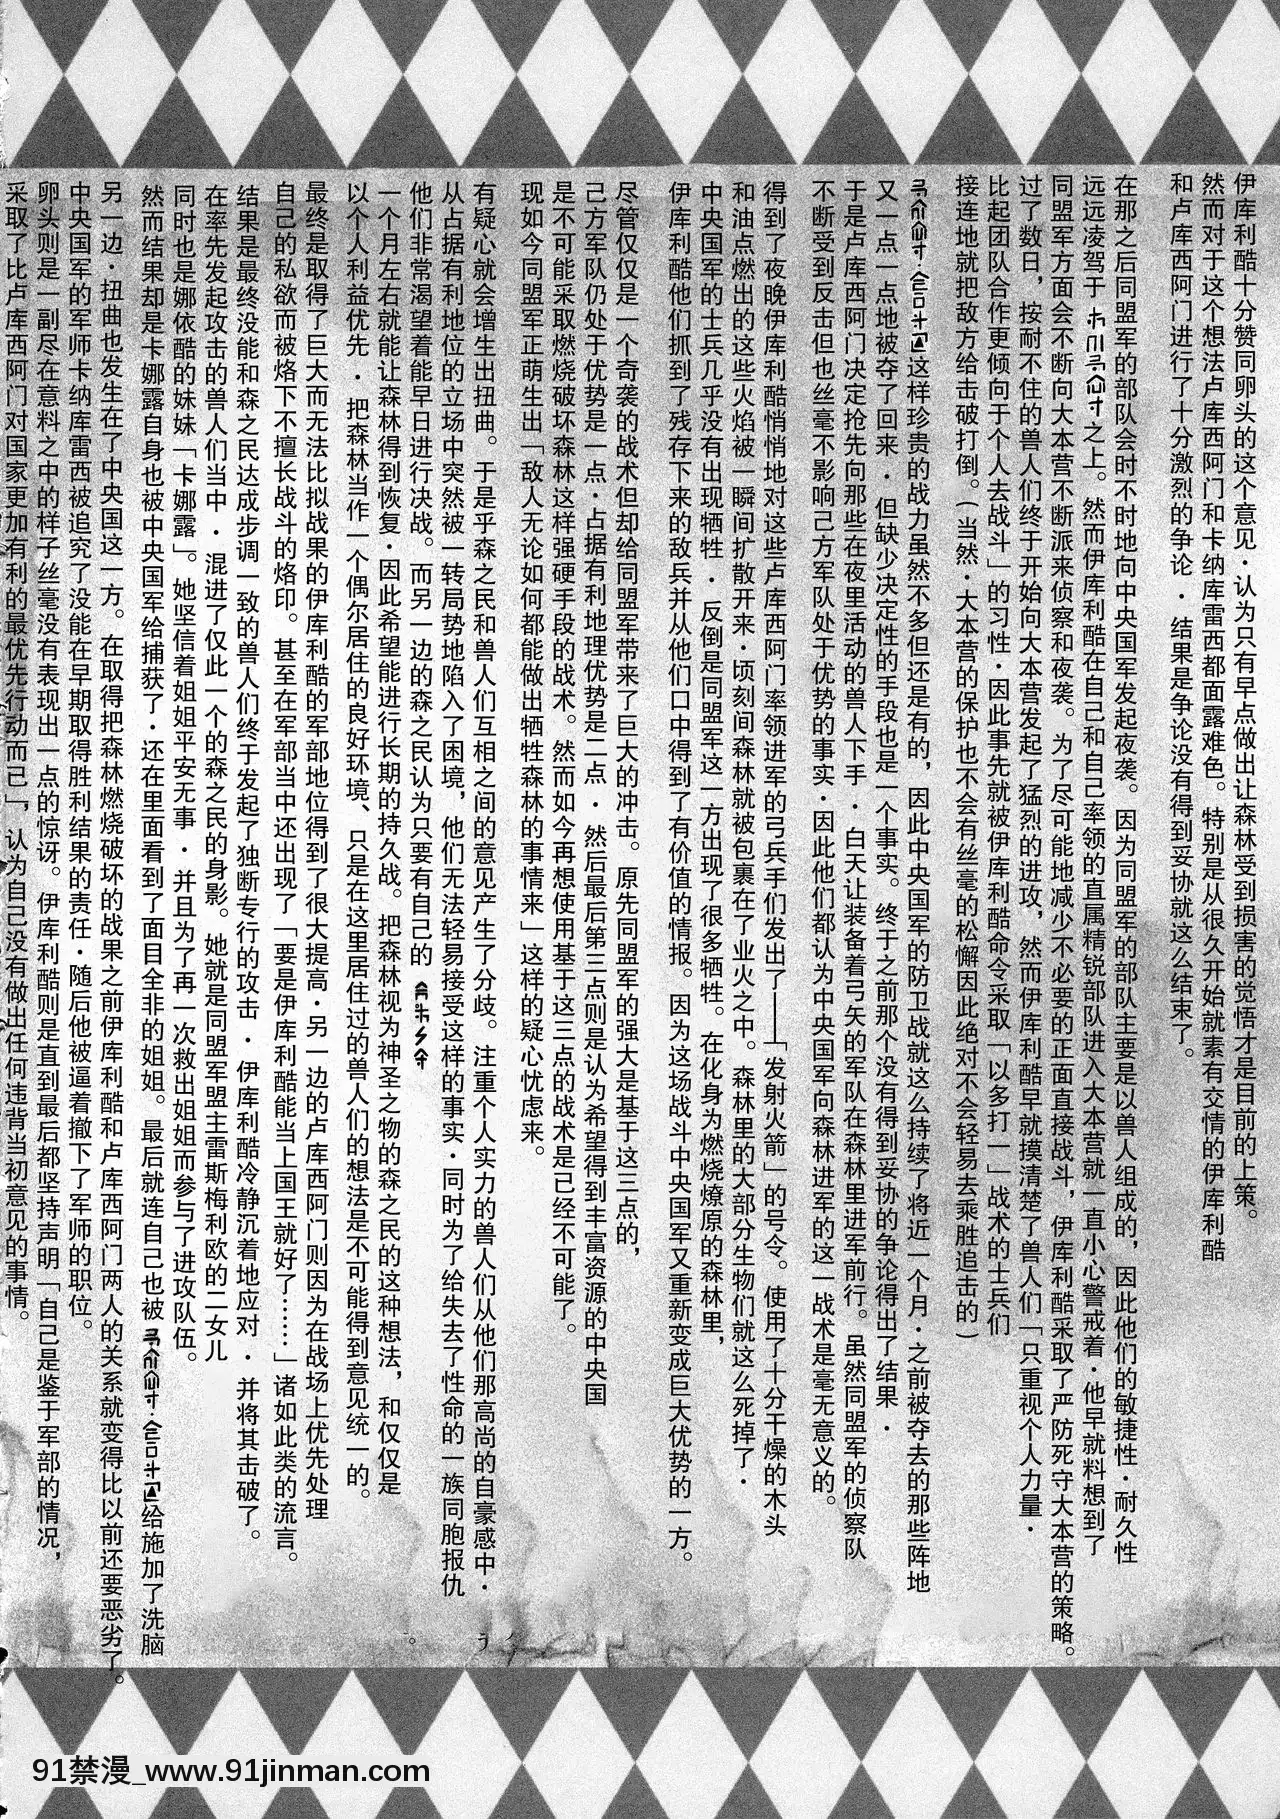 伊库利酷十分赞同卵头的这个意见·认为只有早点做出让森林受到损害的觉悟才是目前的上策。
然而对于这个想法卢库西阿门和卡纳库雷西都面露难色。特别是从很久开始就素有交情的伊库利酷
和卢库西阿门进行了十分激烈的争论·结果是争论没有得到妥协就这么结束了。
在那之后同盟军的部队会时不时地向中央国军发起夜袭。因为同盟军的部队主要是以兽人组成的，因此他们的敏捷性·耐久性
远远凌驾于之上。然而伊库利酷在自己和自己率领的直属精锐部队进入大本营就一直小小心警戒着·他早就料想到了
同盟军方面会不断向大本营不断派来侦察和夜袭。为了尽可能地减少不必要的正面直接战斗，伊库利酷采取了严防死守大本营的策略。
过了数日，按耐不住的兽人们终于开始向大本营发起了猛烈的进攻，然而伊库利酷早就摸清楚了兽人们「只重视个人力量·
比起团队合作更倾向于个人去战斗」的习性·因此事先就被伊库利酷命令采取「以多打一」战术的士兵们
接连地就把敌方给击破打倒。(当然·大本营的保护也不会有丝毫的松懈因此绝对不会轻易去乘胜追击的)
这样珍贵的战力虽然不多但还是有的，因此中央国军的防卫战就这么持续了将近一个月·之前被夺去的那些阵地
又一点一点地被夺了回来·但缺少决定性的手段也是一个事实。终于之前那个没有得到妥协的争论得出了结果·
于是卢库西阿门决定抢先向那些在夜里活动的兽人下手·白天让装备着弓矢的军队在森林里进军前行。虽然同盟军的侦察队
不断受到反击但也丝毫不影响己方军队处于优势的事实·因此他们都认为中央国军向森林进军的这一战术是毫无意义的。
得到了夜晚伊库利酷悄悄地对这些卢库西阿门率领进军的弓兵手们发出了——「发射火箭」的号令。使用了十分干燥的木头
和油点燃出的这些火焰被一瞬间扩散开来·顷刻间森林就被包裹在了业火之中。森林里的大部分生物们就这么死掉了·
中央国军的士兵几乎没有出现牺牲·反倒是同盟军这一方出现了很多牺牲。在化身为燃烧燎原的森林里，
伊库利酷他们抓到了残存下来的敌兵并从他们口中得到了有价值的情报。因为这场战斗中央国军又重新变成巨大优势的一方。
尽管仅仅是一个奇袭的战术但却给同盟军带来了巨大的冲击。原先同盟军的强大是基于这三点的，
己方军队仍处于优势是一点·占据有利地理优势是二点·然后最后第三点则是认为希望得到丰富资源的中央国
是不可能采取燃烧破坏森林这样强硬手段的战术。然而如今再想使用基于这三点的战术是已经不可能了。
现如今同盟军正萌生出「敌人无论如何都能做出牺牲森林的事情来」这样的疑心忧虑来。
有疑心就会增生出扭曲。于是乎森之民和兽人们互相之间的意见产生了分歧。注重个人实力的兽人们从他们那高尚的自豪感中·
从占据有利地位的立场中突然被一转局势地陷入了困境，他们无法轻易接受这样的事实·同时为了给失去了性命的一族同胞报仇
他们非常渴望着能早日进行决战。而另一边的森之民认为只要有自己的
一个月左右就能让森林得到恢复·因此希望能进行长期的持久战。把森林视为神圣之物的森之民的这种想法，和仅仅是
以个人利益优先·把森林当作一个偶尔居住的良好环境、只是在这里居住过的兽人们的想法是不可能得到意见统一的。
最终是取得了巨大而无法比拟战果的伊库利酷的军部地位得到了很大提高·另一边的卢库西阿门则因为在战场上优先处理
自己的私欲而被烙下不擅长战斗的烙印。甚至在军部当中还出现了「要是伊库利酷能当上国王就好了……」诸如此类的流言。
结果是最终没能和森之民达成步调一致的兽人们终于发起了独断专行的攻击·伊库利酷冷静沉着地应对·并将其击破了。
在率先发起攻击的兽人们当中·混进了仅此一个的森之民的身影。她就是同盟军盟主雷斯梅利欧的二女儿
同时也是娜依酷的妹妹「卡娜露」。她坚信着姐姐平安无事·并且为了再一次救出姐姐而参与了进攻队伍。
然而结果却是卡娜露自身也被中央国军给捕获了·还在里面看到了面目全非的姐姐。最后就连自己也被给施加了洗脑
另一边·扭曲也发生在了中央国这一方。在取得把森林燃烧破坏的战果之前伊库利酷和卢库西阿门两人的关系就变得比以前还要恶劣了。
中央国军的军师卡纳库雷西被追究了没能在早期取得胜利结果的责任·随后他被逼着撤下了军师的职位。
卵头则是一副尽在意料之中的样子丝毫没有表现出一点的惊讶。伊库利酷则是直到最后都坚持声明「自己是鉴于军部的情况，
采取了比卢库西阿门对国家更加有利的最优先行动而已」，认为自己没有做出任何违背当初意见的事情。
91禁漫_www.91jinman.com